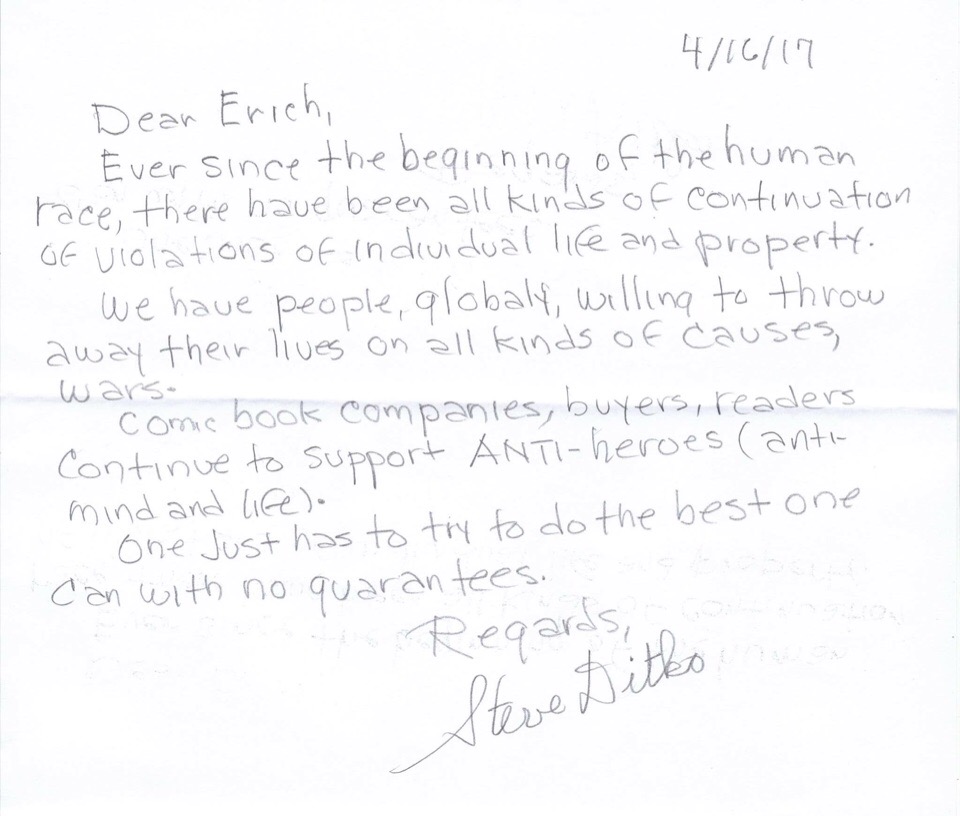 4/16/17
Dear Erich,
Ever since the beginning of the human
race, there have been all kinds of continuation
of violations of individual life and property.
We have people, globaly, willing to throw
away their lives on all kinds of causes,
wars.
Comic book companies, buyers, readers
continue to support ANTI-heroes (anti-
mind and life).
One just has to try to do the best one
can with no guarantees.
Regards,
Steve Ditko